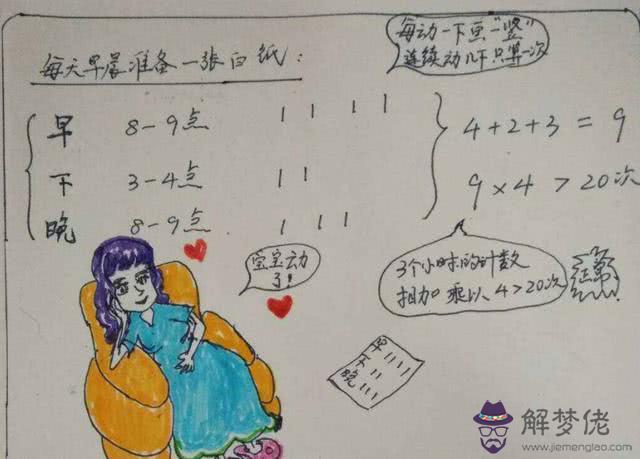 每动一下画“一竖”
连续动几下只算一次
每天早晨准备一张白纸：
早 8-9点 | | | |
下 3-4点 | |
晚 8-9点 | | |
4+2+3=9
9×4>20次
宝宝动
了!
3个小时的计数
相加乘以4>20次
正常
早||||
下||
晚|||
解梦佬
www.jiemenglao.com